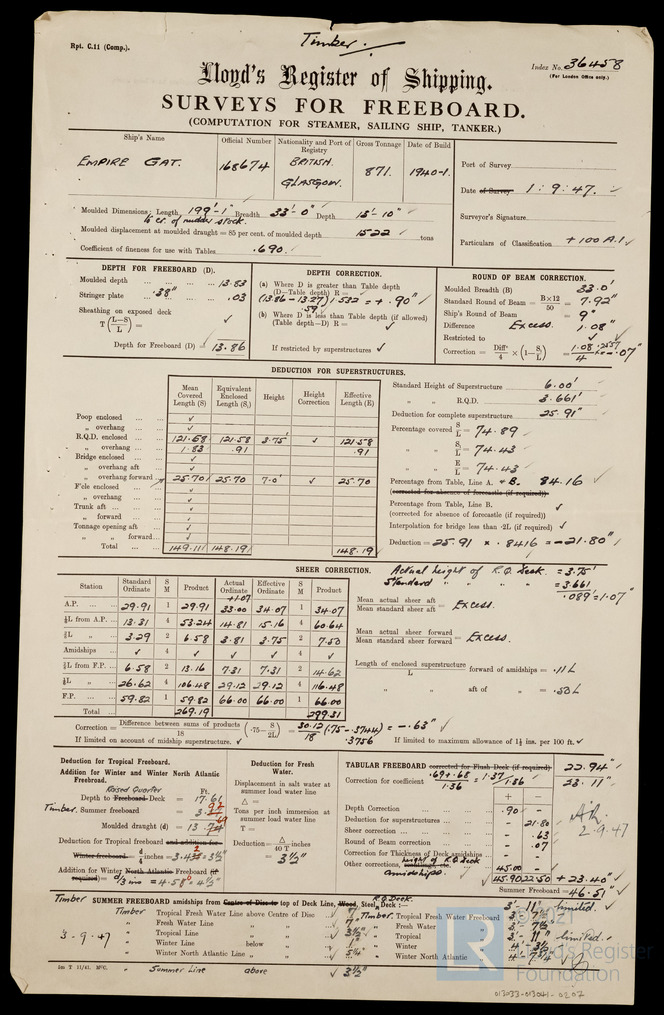 Timber.
Rpt. C.11 (Comp.).
Index No. 36458
(For London Office only.)
Lloyd's Register of Shipping.
SURVEYS FOR FREEBOARD.
(COMPUTATION FOR STEAMER, SAILING SHIP, TANKER.)
Ship's Name Official Number Nationality and Port of Registry Gross Tonnage Date of Build
EMPIRE GAT. 168674 BRITISH GLASGOW. 871. 1940-1.
Port of Survey
Date of Survey 1:9:47.
Surveyor's Signature
Particulars of Classification +100 A.1
Moulded Dimensions: Length 199'-1" Breadth 33'-0" Depth 15'-10"
to cr. of rudder stock.
Moulded displacement at moulded draught = 85 per cent. of moulded depth 1522 tons
Coefficient of fineness for use with Tables .690
DEPTH FOR FREEBOARD (D).
Moulded depth 13.83
Stringer plate .38" .03
Sheathing on exposed deck
T (L-S/L) =
Depth for Freeboard (D) = 13.86
DEPTH CORRECTION.
(a) Where D is greater than Table depth
(D-Table depth) R =
(13.86 - 13.27) 1.532 = + .90"
.59
(b) Where D is less than Table depth (if allowed)
(Table depth-D) R =
If restricted by superstructures
ROUND OF BEAM CORRECTION.
Moulded Breadth (B) 33.0'
Standard Round of Beam = B×12/50 = 7.92"
Ship's Round of Beam = 9"
Difference Excess. 1.08"
Restricted to
Correction = Diff/4 × (1-S/L) = 1.08/4 × .2557 = -.07"
DEDUCTION FOR SUPERSTRUCTURES.
Mean Covered Length (S) Equivalent Enclosed Length (S₁) Height Height Correction Effective Length (E)
Poop enclosed
„ overhang
R.Q.D. enclosed 121.58 121.58 3.75' 121.58
„ overhang 1.83 .91 .91
Bridge enclosed
„ overhang aft
„ overhang forward 25.70 25.70 7.0' 25.70
F'cle enclosed
„ overhang
Trunk aft
„ forward
Tonnage opening aft
„ „ forward
Total 149.11 148.19 148.19
Standard Height of Superstructure 6.00'
„ „ R.Q.D. 3.661'
Deduction for complete superstructure 25.91"
Percentage covered S/L = 74.89
„ S₁/L = 74.43
„ E/L = 74.43
Percentage from Table, Line A. & B. 84.16
(corrected for absence of forecastle (if required))
Percentage from Table, Line B.
(corrected for absence of forecastle (if required))
Interpolation for bridge less than ·2L (if required)
Deduction = 25.91 × .8416 = -21.80"
SHEER CORRECTION.
Station Standard Ordinate S M Product Actual Ordinate Effective Ordinate S M Product
+1.07
A.P. 29.91 1 29.91 33.00 34.07 1 34.07
⅙L from A.P. 13.31 4 53.24 14.81 15.16 4 60.64
⅓L „ 3.29 2 6.58 3.81 3.75 2 7.50
Amidships 4 4
⅓L from F.P. 6.58 2 13.16 7.31 7.31 2 14.62
⅙L „ 26.62 4 106.48 29.12 29.12 4 116.48
F.P. 59.82 1 59.82 66.00 66.00 1 66.00
Total 269.19 299.31
Actual height of R.Q. Deck = 3.75'
Standard „ „ „ = 3.661
.089' = 1.07"
Mean actual sheer aft / Mean standard sheer aft = Excess.
Mean actual sheer forward / Mean standard sheer forward = Excess.
Length of enclosed superstructure / L forward of amidships = .11L
„ „ aft of „ = .50L
Correction = Difference between sums of products / 18 (·75 - S/2L) = 30.12/18 (.75 - .3744) = -.63"
.3756
If limited on account of midship superstructure.
If limited to maximum allowance of 1½ ins. per 100 ft.
Deduction for Tropical Freeboard.
Addition for Winter and Winter North Atlantic Freeboard.
Raised Quarter Ft.
Depth to Freeboard Deck = 17.61
Timber. Summer freeboard =
Moulded draught (d) =
Deduction for Tropical freeboard and addition for
Winter freeboard d/4 inches = 3½"
Addition for Winter North Atlantic Freeboard (if required) = d/3 ins = 4.58 = 4½"
Deduction for Fresh Water.
Displacement in salt water at summer load water line
Δ =
Tons per inch immersion at summer load water line
T =
Deduction = Δ/40T inches
= 3½"
TABULAR FREEBOARD corrected for Flush Deck (if required) 22.94"
Correction for coefficient .69+.68/1.36 = 1.37/1.36 23.11"
+ -
Depth Correction .90
Deduction for superstructures 21.80
Sheer correction .63
Round of Beam correction .07
Correction for Thickness of Deck amidships
Other corrections, height of R.Q. Deck amidships 45.00
45.90 22.50 + 23.40"
Summer Freeboard = 46.51"
2.9.47
R.Q. Deck.
Timber SUMMER FREEBOARD amidships from Centre of Disc to top of Deck Line, Wood, Steel, Deck :—
Timber Tropical Fresh Water Line above Centre of Disc 7"
„ Fresh Water Line „ „
3.9.47 „ Tropical Line „ „ 3½"
„ Winter Line below „ 1"
„ Winter North Atlantic Line „ „ 5¼"
„ Summer Line above 3½"
Timber. Tropical Fresh Water Freeboard 3'-11" limited.
„ Fresh Water „
„ Tropical „ 11" limited.
„ Winter „
„ Winter North Atlantic „
1m T 11/41. SPC.
© 2021
Lloyd's Register
Foundation
LR
013033-013041-0207